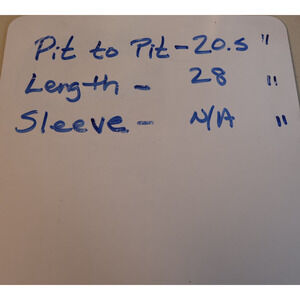 Pit to Pit - 20.5 "
Length - 28 "
Sleeve - N/A "